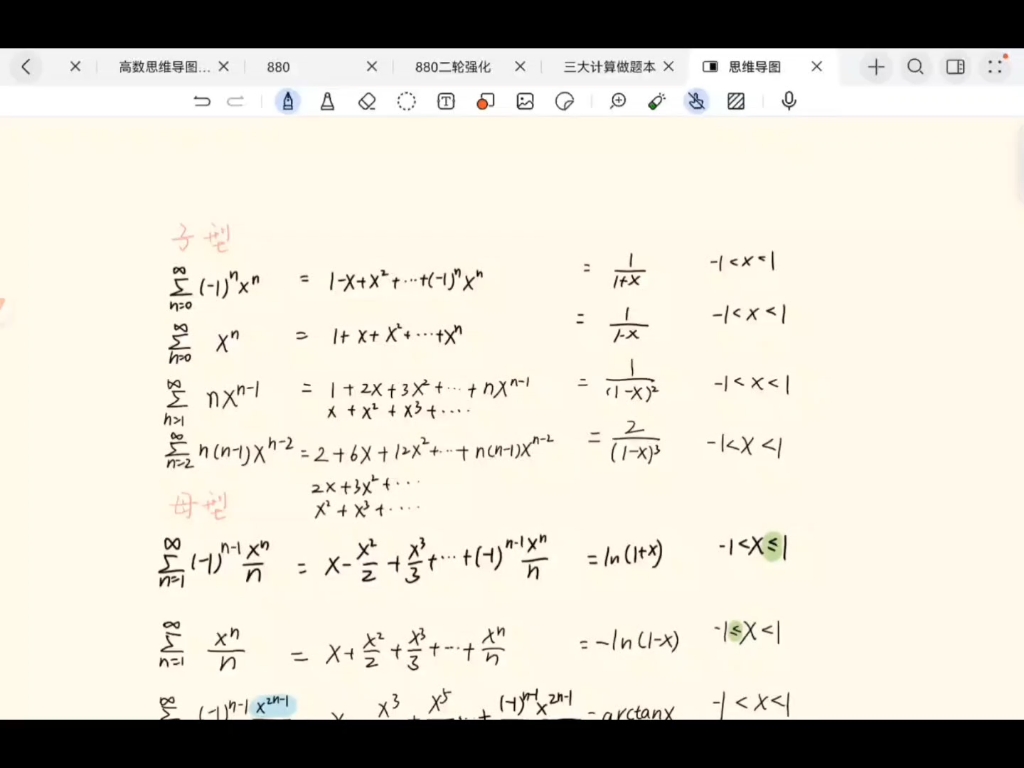 高数思维导图... 880 880二轮强化 三大计算做题本 思维导图
子型
∑_{n=0}^{∞} (-1)^n x^n = 1-x+x²+⋯+(-1)^n x^n = 1/(1+x) -1<x<1
∑_{n=0}^{∞} x^n = 1+x+x²+⋯+x^n = 1/(1-x) -1<x<1
∑_{n=1}^{∞} nx^{n-1} = 1+2x+3x²+⋯+nx^{n-1} = 1/(1-x)² -1<x<1
x+x²+x³+⋯
∑_{n=2}^{∞} n(n-1)x^{n-2} = 2+6x+12x²+⋯+n(n-1)x^{n-2} = 2/(1-x)³ -1<x<1
2x+3x²+⋯
x²+x³+⋯
母型
∑_{n=1}^{∞} (-1)^{n-1} x^n/n = x-x²/2+x³/3+⋯+(-1)^{n-1} x^n/n = ln(1+x) -1<x≤1
∑_{n=1}^{∞} x^n/n = x+x²/2+x³/3+⋯+x^n/n = -ln(1-x) -1≤x<1
∑^{∞} (-1)^{n-1} x^{2n-1} x x³ x⁵ + (-1)^{n-1} x^{2n-1} = arctanx -1<x<1